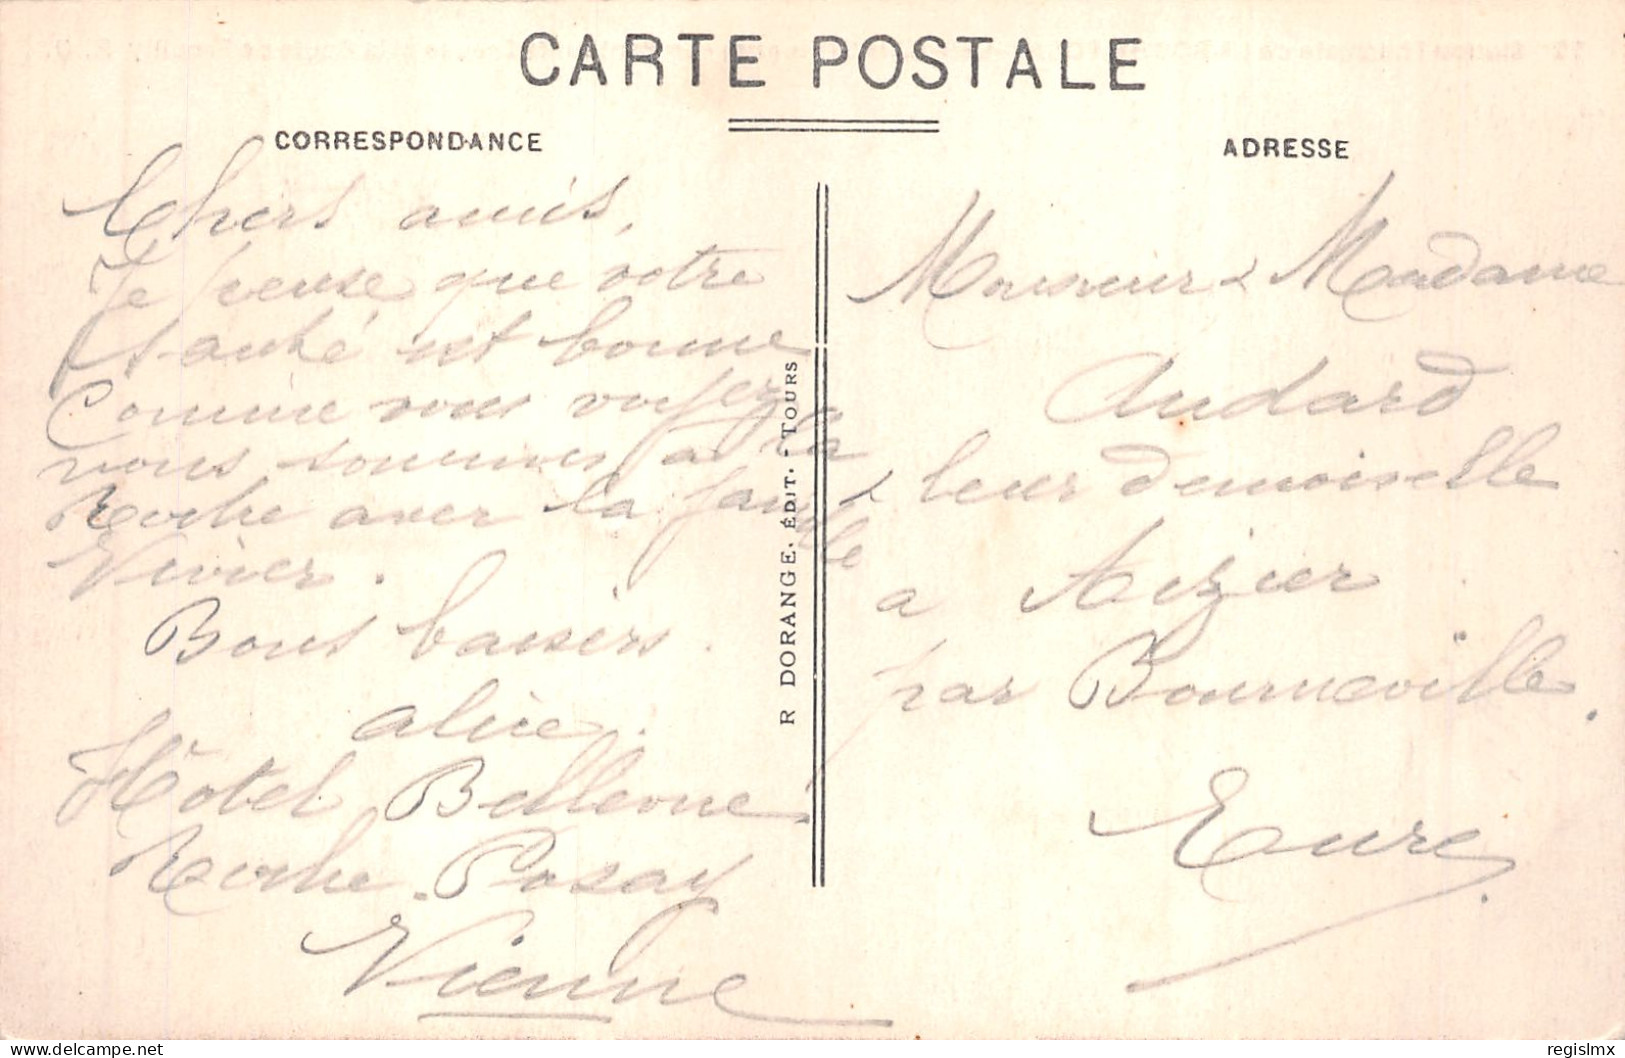 CARTE POSTALE
CORRESPONDANCE
Chers amis,
Je pense que votre
santé est bonne
Comme vous voyez
nous sommes a la
Roche avec la famille
Vivier.
Bons baisers.
alice.
Hôtel Bellevue
Roche-Posay
Vienne
R DORANGE. ÉDIT. - TOURS
ADRESSE
Monsieur & Madame
Audard
& leur demoiselle
a Aizier
par Bourneville.
Eure
regislmx